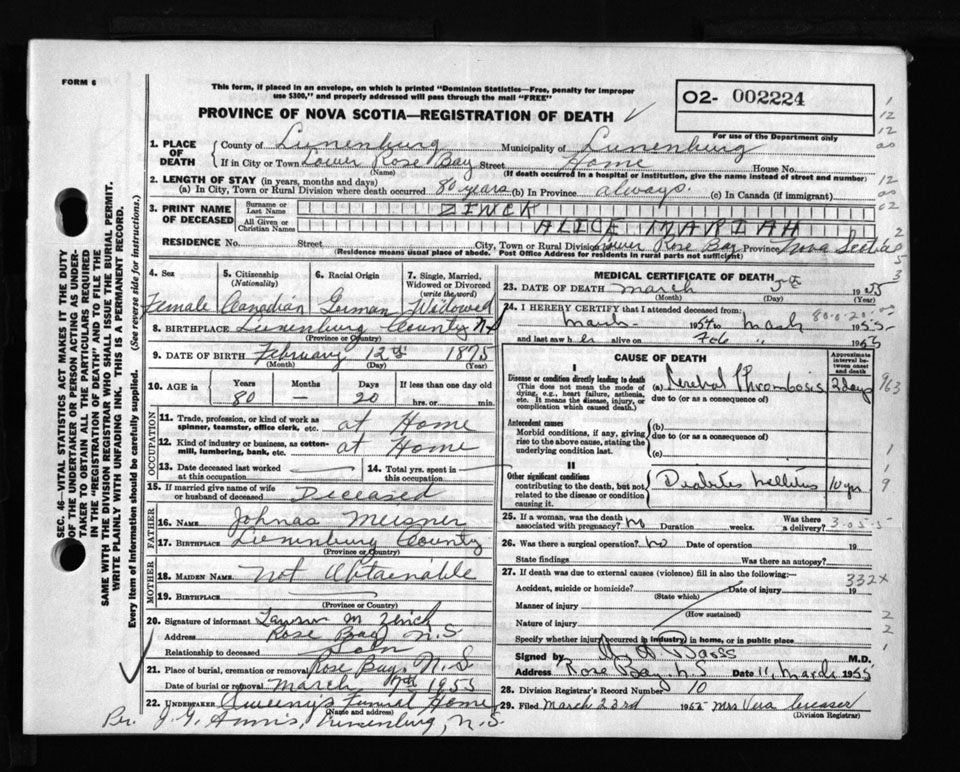 FORM 6
This form, if placed in an envelope, on which is printed "Dominion Statistics—Free, penalty for improper
use $300," and properly addressed will pass through the mail "FREE"
PROVINCE OF NOVA SCOTIA—REGISTRATION OF DEATH
02- 002224
For use of the Department only
1. PLACE OF DEATH
County of Lunenburg Municipality of Lunenburg
If in City or Town Lower Rose Bay Street Home House No.
(Name) (If death occurred in a hospital or institution, give the name instead of street and number)
2. LENGTH OF STAY (in years, months and days)
(a) In City, Town or Rural Division where death occurred 80 years (b) In Province always. (c) In Canada (if immigrant)
3. PRINT NAME OF DECEASED
Surname or Last Name ZINCK
All Given or Christian Names ALICE MARIAH
RESIDENCE No. Street City, Town or Rural Division Lower Rose Bay Province Nova Scotia
(Residence means usual place of abode. Post Office Address for residents in rural parts not sufficient)
4. Sex Female
5. Citizenship (Nationality) Canadian
6. Racial Origin German
7. Single, Married, Widowed or Divorced (write the word) Widowed
8. BIRTHPLACE Lunenburg County N.S
(Province or Country)
9. DATE OF BIRTH February 12 1875
(Month) (Day) (Year)
10. AGE in Years 80 Months — Days 20 If less than one day old hrs. or min.
OCCUPATION
11. Trade, profession, or kind of work as spinner, teamster, office clerk, etc. at Home
12. Kind of industry or business, as cotton-mill, lumbering, bank, etc. at Home
13. Date deceased last worked at this occupation
14. Total yrs. spent in this occupation
15. If married give name of wife or husband of deceased Deceased
FATHER
16. NAME Johnas Meisner
17. BIRTHPLACE Lunenburg County
(Province or Country)
MOTHER
18. MAIDEN NAME Not Obtainable
19. BIRTHPLACE
(Province or Country)
20. Signature of informant M Zinck
Address Rose Bay N.S
Relationship to deceased Son
21. Place of burial, cremation or removal Rose Bay, N.S
Date of burial or removal March 1955
22. UNDERTAKER Sweeny's Funeral Home
(Name and address)
Per. J. G. Lunenburg, N.S.
MEDICAL CERTIFICATE OF DEATH
23. DATE OF DEATH March 5th 1955
(Month) (Day)
24. I HEREBY CERTIFY that I attended deceased from:
March 1954 to March 1955
and last saw her alive on Feb 1955
CAUSE OF DEATH
Approximate interval between onset and death
I
Disease or condition directly leading to death (a) Cerebral Thrombosis 2 days
(This does not mean the mode of dying, e.g., heart failure, asthenia, etc. It means the disease, injury, or complication which caused death.)
due to (or as a consequence of)
Antecedent causes
Morbid conditions, if any, giving rise to the above cause, stating the underlying condition last.
(b)
due to (or as a consequence of)
(c)
II
Other significant conditions
contributing to the death, but not related to the disease or condition causing it.
Diabetes Mellitus 10 yrs
25. If a woman, was the death associated with pregnancy? No Duration weeks. Was there a delivery?
3-05-5
26. Was there a surgical operation? No Date of operation 19
State findings Was there an autopsy?
27. If death was due to external causes (violence) fill in also the following:—
332X
Accident, suicide or homicide? Date of injury 19
(State which)
Manner of injury
(How sustained)
Nature of injury
Specify whether injury occurred in industry, in home, or in public place
Signed by M.D.
Address Rose Bay, N.S Date 11, March 1955
28. Division Registrar's Record Number 10
29. Filed March 23rd 1955 Mrs Vera Creaser
(Division Registrar)
SEC. 46—VITAL STATISTICS ACT MAKES IT THE DUTY
OF THE UNDERTAKER OR PERSON ACTING AS UNDER-
TAKER TO OBTAIN ALL THE PARTICULARS REQUIRED
IN THE "REGISTRATION OF DEATH" AND TO FILE THE
SAME WITH THE DIVISION REGISTRAR WHO SHALL ISSUE THE BURIAL PERMIT.
WRITE PLAINLY WITH UNFADING INK. THIS IS A PERMANENT RECORD.
Every item of information should be carefully supplied. (See reverse side for instructions.)